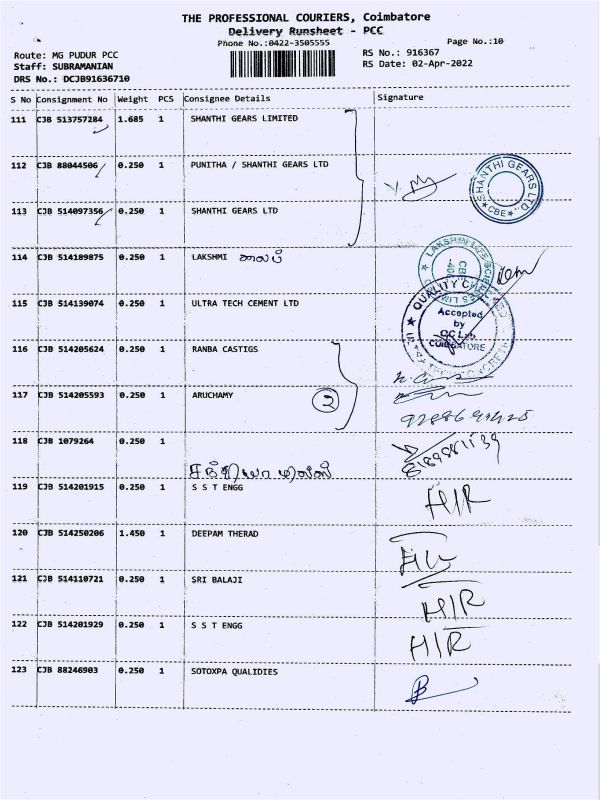 THE PROFESSIONAL COURIERS, Coimbatore
Delivery Runsheet - PCC
Phone No.:0422-3505555
Page No.:10
Route: MG PUDUR PCC
RS No.: 916367
Staff: SUBRAMANIAN
RS Date: 02-Apr-2022
DRS No.: DCJB91636710
S No Consignment No Weight PCS Consignee Details Signature
111 CJB 513757284 1.685 1 SHANTHI GEARS LIMITED
112 CJB 88044506 0.250 1 PUNITHA / SHANTHI GEARS LTD
SHANTHI GEARS LTD
CBE
113 CJB 514097356 0.250 1 SHANTHI GEARS LTD
114 CJB 514189875 0.250 1 LAKSHMI
115 CJB 514139074 0.250 1 ULTRA TECH CEMENT LTD
Accepted
by
QC Lab
COIMBATORE
116 CJB 514205624 0.250 1 RANBA CASTIGS
117 CJB 514205593 0.250 1 ARUCHAMY
2
118 CJB 1079264 0.250 1
119 CJB 514201915 0.250 1 S S T ENGG
H/R
120 CJB 514250206 1.450 1 DEEPAM THERAD
121 CJB 514110721 0.250 1 SRI BALAJI
H/R
122 CJB 514201929 0.250 1 S S T ENGG
H/R
123 CJB 88246903 0.250 1 SOTOXPA QUALIDIES